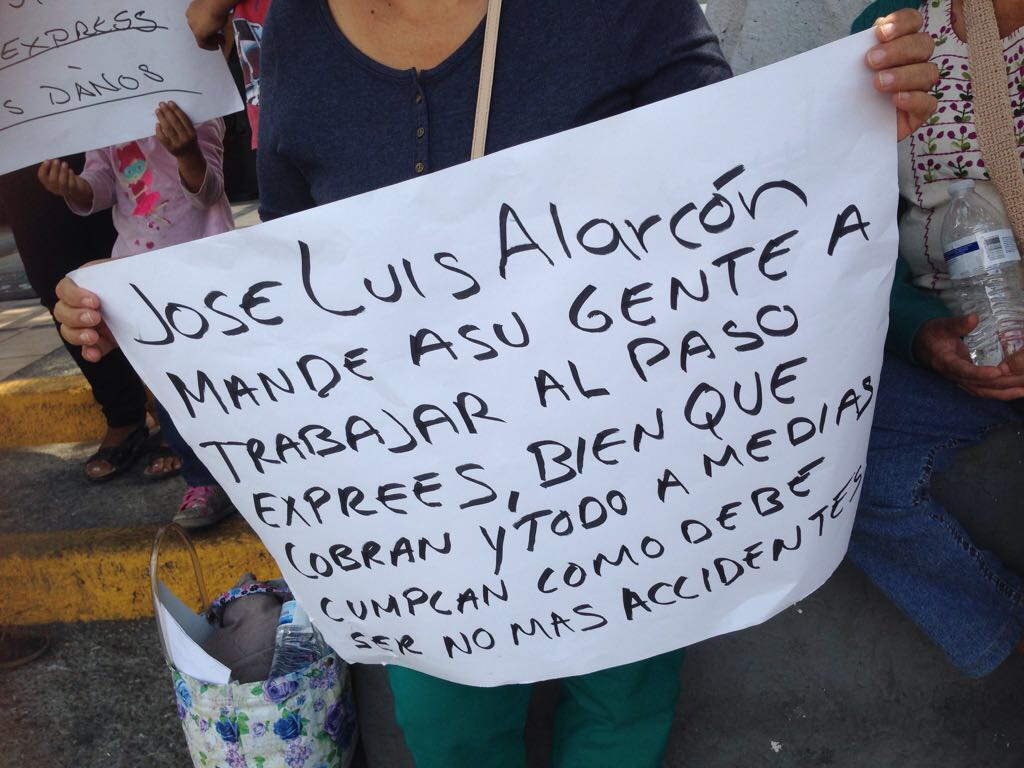 EXPRESS
S DAÑOS
JOSE LUIS Alarcón
MANDE ASU GENTE A
TRABAJAR AL PASO
EXPREES, BIEN QUE
COBRAN Y TODO A MEDIAS
CUMPLAN COMO DEBE
SER NO MAS ACCIDENTES